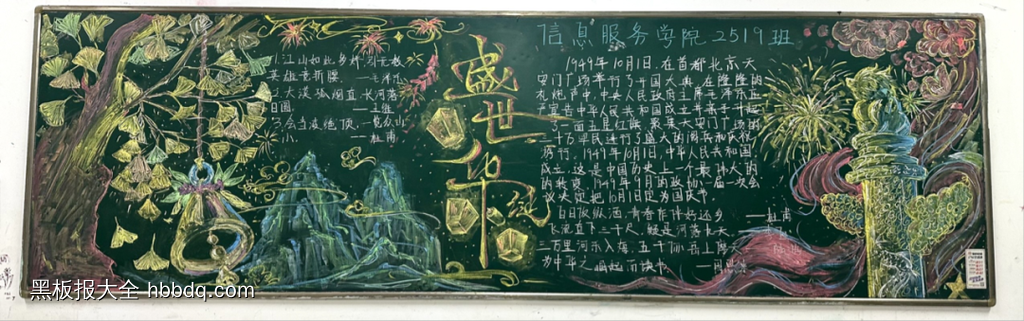 信息服务学院2519班
1.江山如此多娇,引无数
英雄竞折腰 ——毛泽东
2.大漠孤烟直长河落
日圆。 ——王维
3.会当凌绝顶,一览众山
小。 ——杜甫
盛世华
纪
1949年10月1日,在首都北京天
安门广场举行了开国大典,在隆隆的
礼炮声中,中央人民政府主席毛泽东庄
严宣告中华人民共和国成立并亲手升起
了第一面五星红旗
三十万军民进行了盛大的阅兵和庆祝
游行。1949年10月1日,中华人民共和国
成立,这是中国历史上一个最伟大的
的转变,1949年9月的政协一届一次会
议决定把10月1日定为国庆节
白日放纵酒,青春作伴好还乡 ——杜甫
飞流直下三千尺,疑是河落九天
三万里河东入海,五千仞岳上摩天
为中华之崛起而读书。
黑板报大全 hbbdq.com